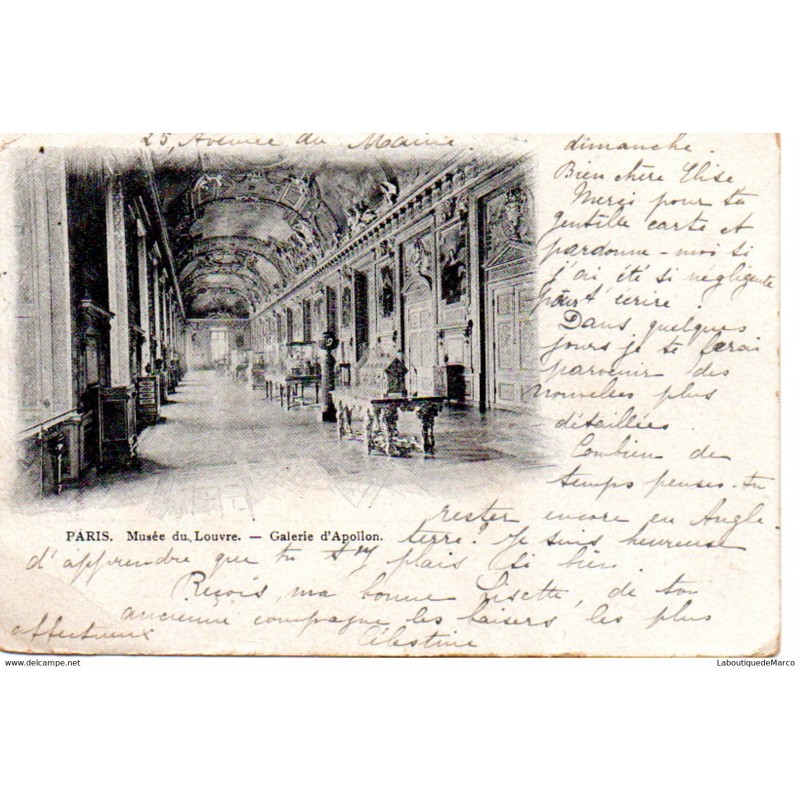 25, Avenue du Maine.
dimanche.
Bien chère Elise
Merçi pour ta
gentille carte et
pardonne-moi si
j'ai été si négligente
pour t'écrire!
Dans quelques
jours je te ferai
parvenir des
nouvelles plus
détaillées.
Combien de
temps penses-tu
rester encore en Angle-
terre? Je suis heureuse
PARIS. Musée du Louvre. — Galerie d'Apollon.
d'apprendre que tu t'y plais si bien.
Reçois, ma bonne Lisette, de ton
ancienne compagne les baisers les plus
affectueux
Célestine
www.delcampe.net
LaboutiquedeMarco